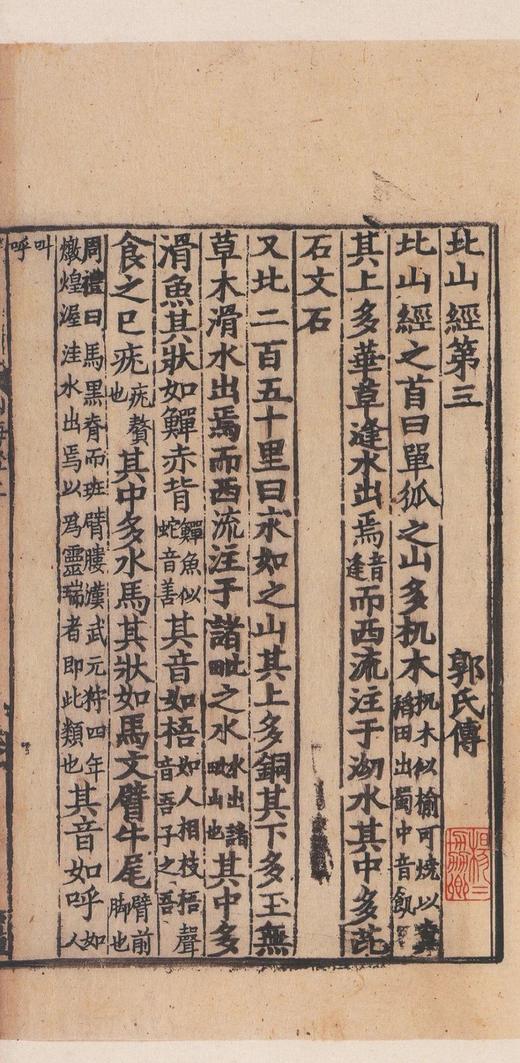 北山經第三 郭氏傳
北山經之首曰單狐之山多机木机木似榆可燒以糞稻田出蜀中音飢
其上多華草逢水出焉音逢而西流注于泑水其中多芘
石文石
又北二百五十里曰求如之山其上多銅其下多玉無
草木滑水出焉而西流注于諸毗之水水出諸毗山也其中多
滑魚其狀如鱓赤背鱓魚似蛇音善其音如梧如人相枝梧聲音吾子之吾
食之已疣疣贅也其中多水馬其狀如馬文臂牛尾臂前脚也
周禮曰馬黑脊而班臂膢漢武元狩四年燉煌渥洼水出焉以爲靈瑞者即此類也其音如呼如人
叫呼